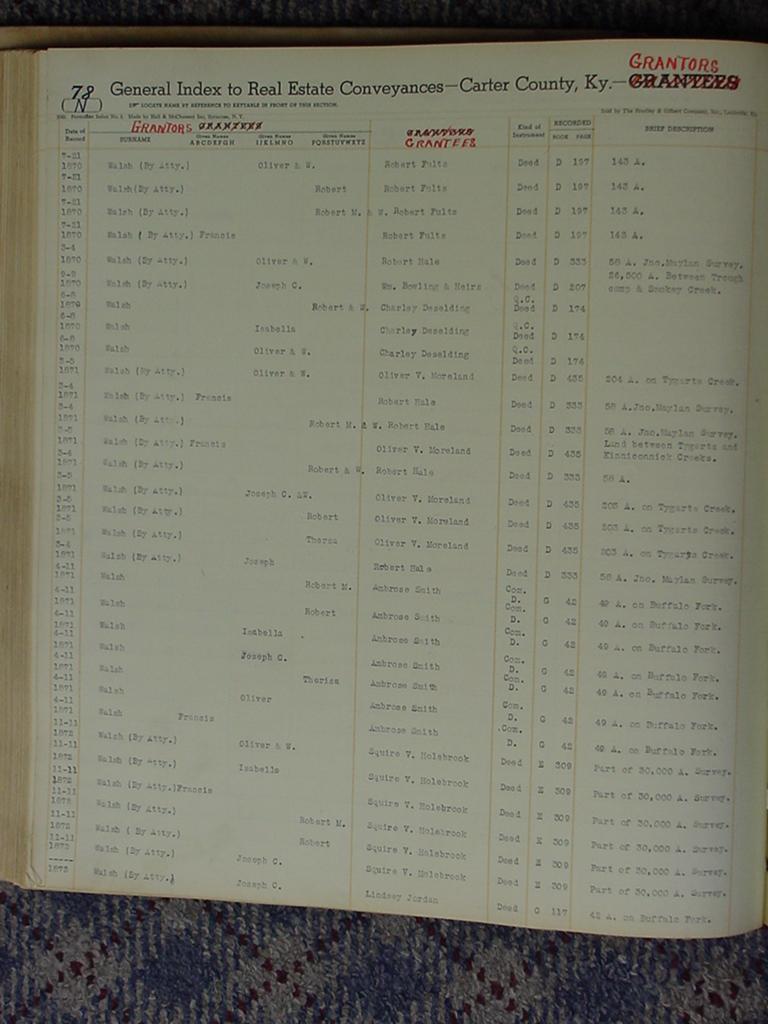 GRANTORS
78
N
General Index to Real Estate Conveyances—Carter County, Ky.—GRANTEES
LOCATE NAME BY REFERENCE TO KEYTABLE IN FRONT OF THIS SECTION.
GRANTORS GRANTEES GRANTORS GRANTEES
Date of Record SURNAME Given Names ABCDEFGH Given Names IJKLMNO Given Names PQRSTUVWXYZ Kind of Instrument RECORDED BOOK PAGE BRIEF DESCRIPTION
7-21 1870 Walsh (By Atty.) Oliver & W. Robert Fults Deed D 197 143 A.
7-21 1870 Walsh(By Atty.) Robert Robert Fults Deed D 197 143 A.
7-21 1870 Walsh (By Atty.) Robert M. & W. Robert Fults Deed D 197 143 A.
7-21 1870 Walsh ( By Atty.) Francis Robert Fults Deed D 197 143 A.
3-4 1870 Walsh (By Atty.) Oliver & W. Robert Hale Deed D 333 58 A. Jno.Maylan Survey.
9-9 1870 Walsh (By Atty.) Joseph C. Wm. Bowling & Heirs Deed D 207 26,500 A. Between Trough camp & Smokey Creek.
6-8 1870 Walsh Robert & W. Charley Deselding Q.C. Deed D 174
6-8 1870 Walsh Isabella Charley Deselding Q.C. Deed D 174
6-8 1870 Walsh Oliver & W. Charley Deselding Q.C. Deed D 174
3-5 1871 Walsh (By Atty.) Oliver & W. Oliver V. Moreland Deed D 435 204 A. on Tygarts Creek.
3-4 1871 Walsh (By Atty.) Francis Robert Hale Deed D 333 58 A.Jno.Maylan Survey.
3-4 1871 Walsh (By Atty.) Robert M. & W. Robert Hale Deed D 333 58 A. Jno.Maylan Survey.
3-5 1871 Walsh (By Atty.) Francis Oliver V. Moreland Deed D 435 Land between Tygarts and Kinniconnick Creeks.
3-4 1871 Walsh (By Atty.) Robert & W. Robert Hale Deed D 333 58 A.
3-5 1871 Walsh (By Atty.) Joseph C. &W. Oliver V. Moreland Deed D 435 203 A. on Tygarts Creek.
3-5 1871 Walsh (By Atty.) Robert Oliver V. Moreland Deed D 435 203 A. on Tygarts Creek.
3-5 1871 Walsh (By Atty.) Theresa Oliver V. Moreland Deed D 435 203 A. on Tygarts Creek.
3-4 1871 Walsh (By Atty.) Joseph Robert Hale Deed D 333 58 A. Jno. Maylan Survey.
4-11 1871 Walsh Robert M. Ambrose Smith Com. D. G 42 49 A. on Buffalo Fork.
4-11 1871 Walsh Robert Ambrose Smith Com. D. G 42 49 A. on Buffalo Fork.
4-11 1871 Walsh Isabella Ambrose Smith Com. D. G 42 49 A. on Buffalo Fork.
4-11 1871 Walsh Joseph C. Ambrose Smith Com. D. G 42 49 A. on Buffalo Fork.
4-11 1871 Walsh Therisa Ambrose Smith Com. D. G 42 49 A. on Buffalo Fork.
4-11 1871 Walsh Oliver Ambrose Smith Com. D. G 42 49 A. on Buffalo Fork.
4-11 1871 Walsh Francis Ambrose Smith Com. D. G 42 49 A. on Buffalo Fork.
11-11 1872 Walsh (By Atty.) Oliver & W. Squire V. Holebrook Deed E 309 Part of 30,000 A. Survey.
11-11 1872 Walsh (By Atty.) Isabella Squire V. Holebrook Deed E 309 Part of 30,000 A. Survey.
11-11 1872 Walsh (By Atty.)Francis Squire V. Holebrook Deed E 309 Part of 30,000 A. Survey.
11-11 1872 Walsh (By Atty.) Robert M. Squire V. Holebrook Deed E 309 Part of 30,000 A. Survey.
11-11 1872 Walsh ( By Atty.) Robert Squire V. Holebrook Deed E 309 Part of 30,000 A. Survey.
Walsh (By Atty.) Joseph C. Squire V. Holebrook Deed E 309 Part of 30,000 A. Survey.
----- 1873 Walsh (By Atty.) Joseph C. Lindsey Jordan Deed G 117 42 A. on Buffalo Fork.